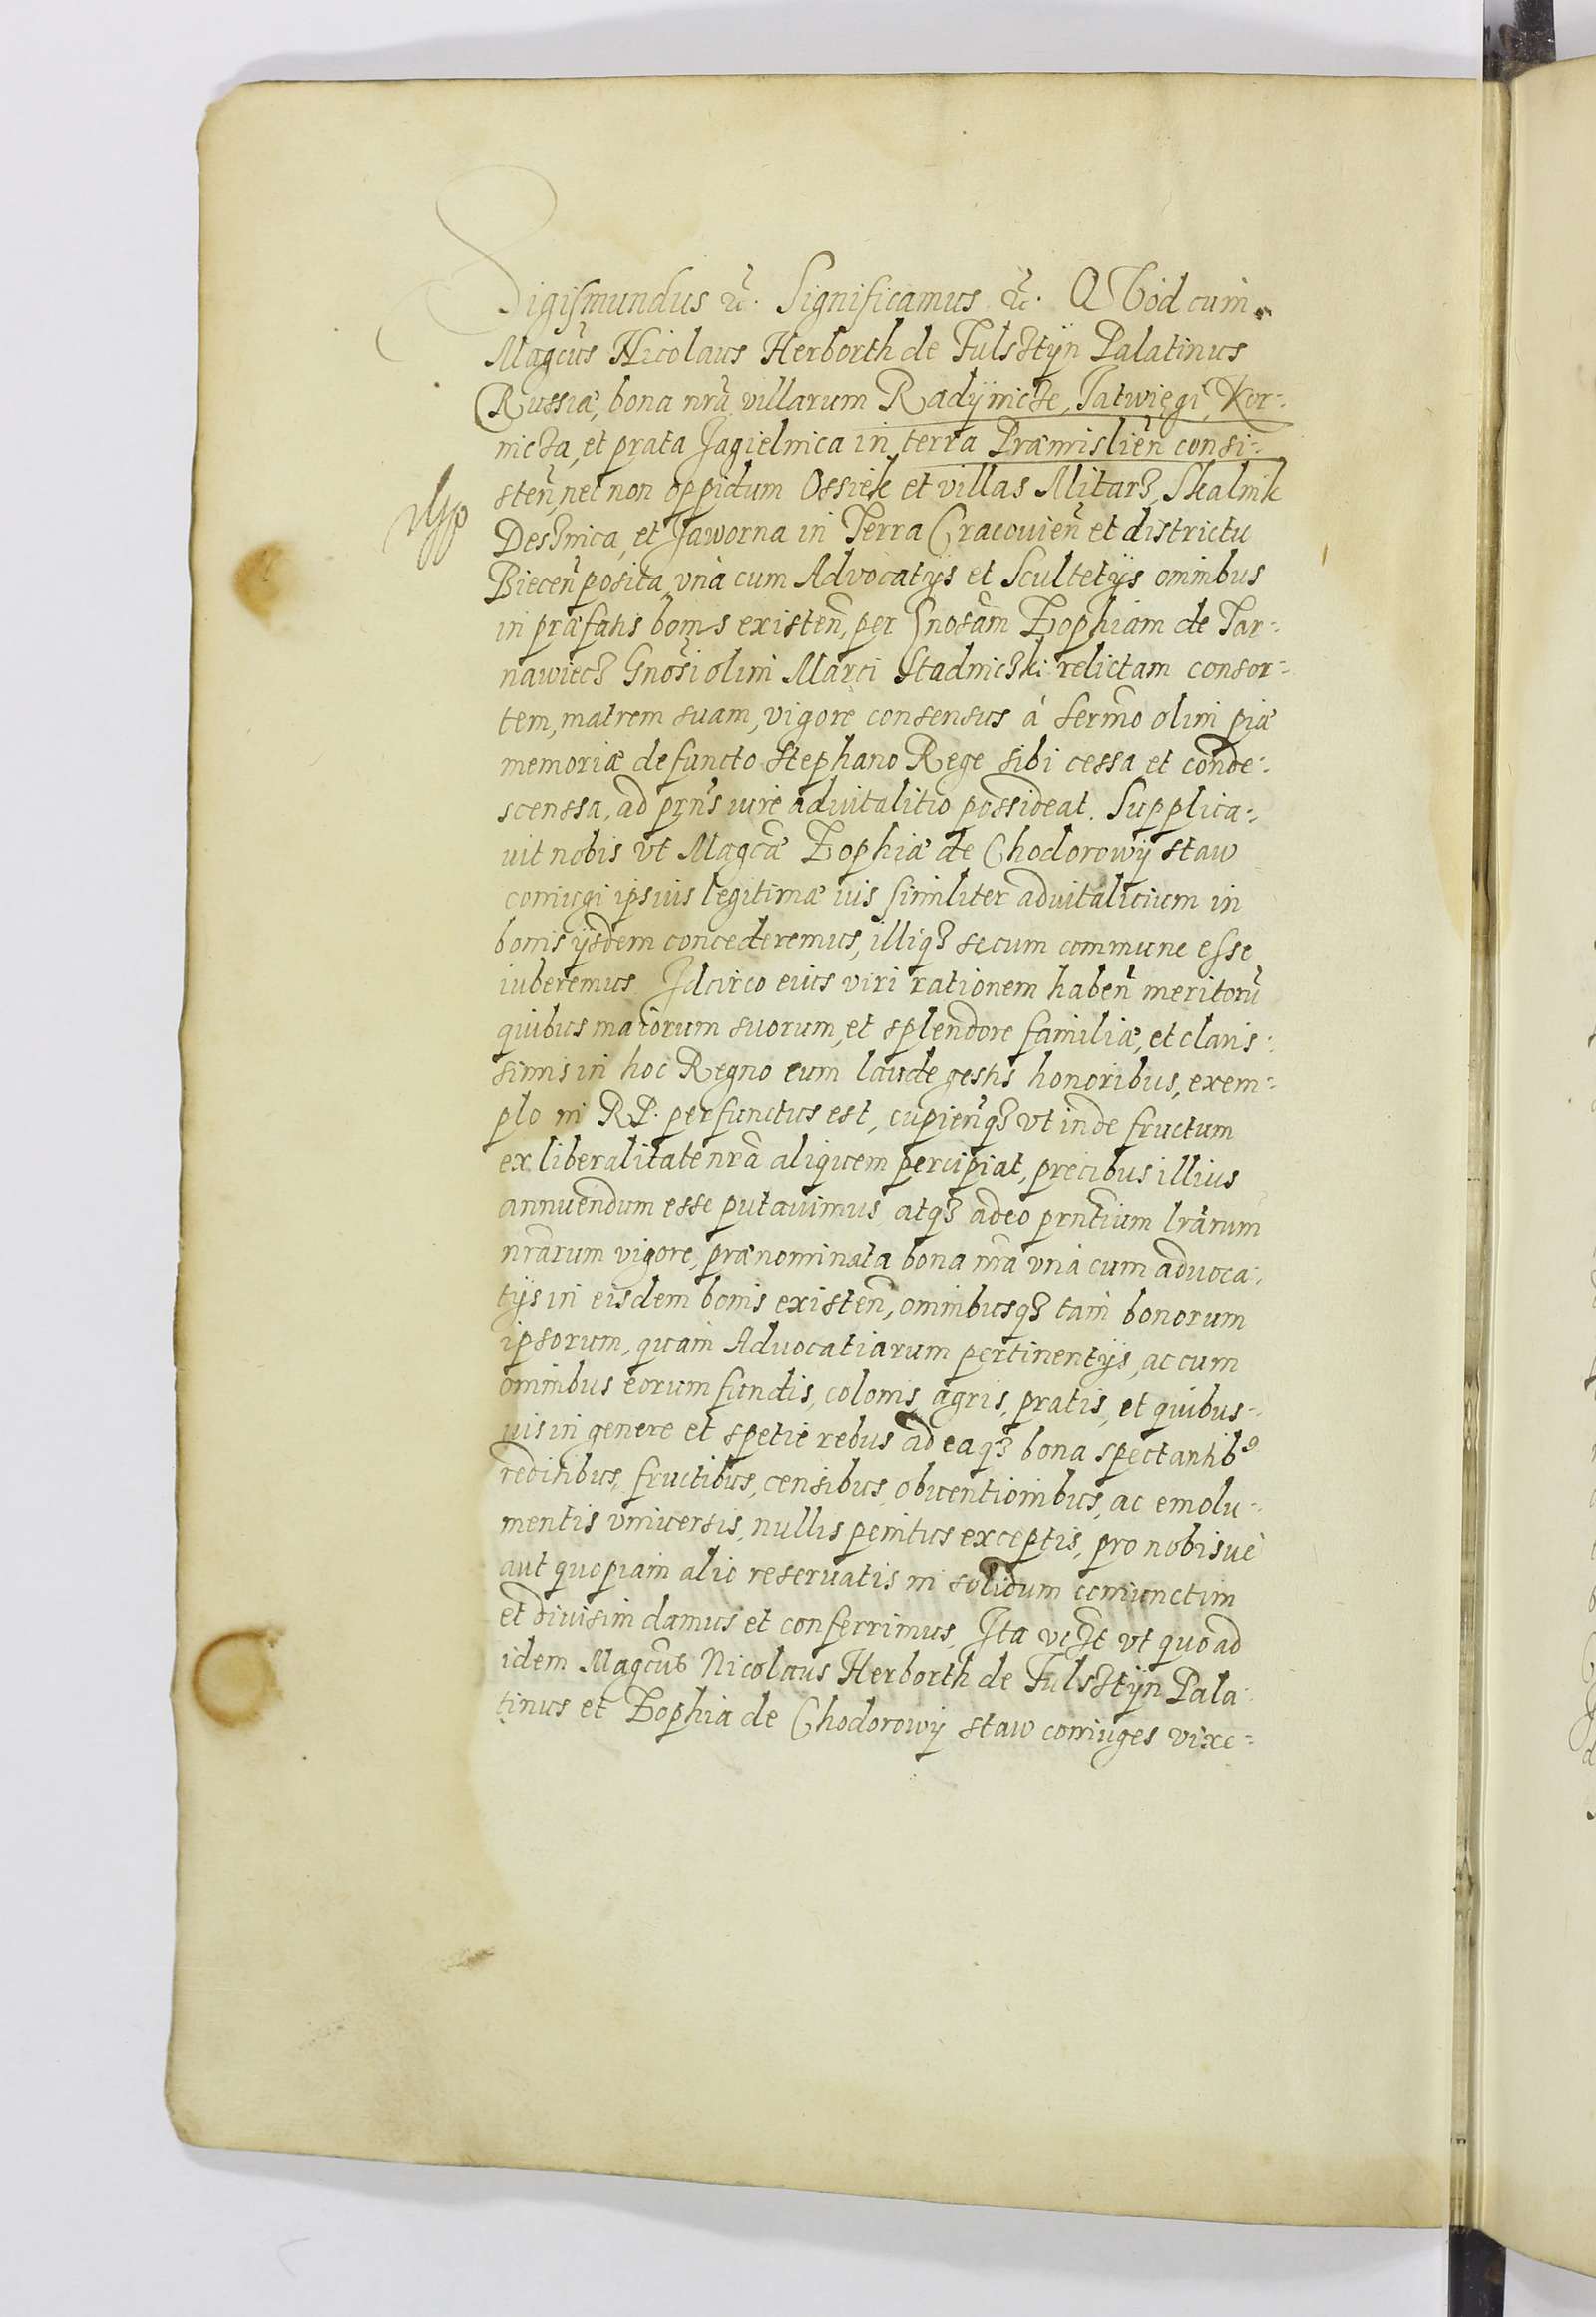 Sigismundus &c. Significamus &c. QVod cum
Magcus Nicolaus Herborth de Fulsztÿn Palatinus
Russiæ, bona nrā villarum Radÿnicze, Tatwięgi, Ker=
nicza, et prata Jagielnica in terra Præmislień consi=
steń, nec non oppidum Ossiek et villas Mitarz, Skalnik
Desznica, et Jaworna in Terra Cracouień et districtu
Biecen̄ posita, vnà cum Advocatÿs et Scultetÿs omnibus
in præfatis bonis existen̄, per Gnosam Zophiam de Tar=
nawiecz Gnosi olim Marci Stadniczki relictam consor=
tem, matrem suam, vigore consensus à Sermo olim piæ
memoriæ defuncto Stephano Rege sibi cessa et conde=
scenssa, ad prns iure advitalitio possideat. Supplica=
uit nobis vt Magcæ Zophiæ de Chodorowÿ staw
coniugi ipsius legitimæ ius similiter advitalicium in
bonis ÿsdem concederemus, illiqz secum commune esse
iuberemus. Idcirco eius viri rationem haben̄ meritorū
quibus maiorum suorum, et splendore familiæ, et claris=
simis in hoc Regno cum laude gestis honoribus, exem=
plo in RP. perfunctus est, cupien̄qz vt inde fructum
ex liberalitate nrā aliquem percipiat, precibus illius
annuendum esse putauimus, atqz adeo prntium lrarum
nrarum vigore, prænominata bona nrā vnà cum aduoca=
tÿs in eisdem bonis existen̄, omnibusqz tam bonorum
ipsorum, quam Advocatiarum pertinentÿs, ac cum
omnibus eorum fundis, colonis, agris, pratis, et quibus=
uis in genere et spetie rebus ad eaqz bona spectantibꝰ
reditibus, fructibus, censibus, obuentionibus, ac emolu=
mentis vniuersis, nullis penitus exceptis, pro nobisuè
aut quopiam alio reseruatis in solidum coniunctim
et diuisim damus et conferrimus, Ita vczt vt quoad
idem Magcus Nicolaus Herborth de Fulsztÿn Pala=
tinus et Zophia de Chodorowÿ staw coniuges vixe=